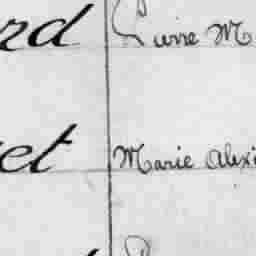 rd Pierre M
et Marie Alexi